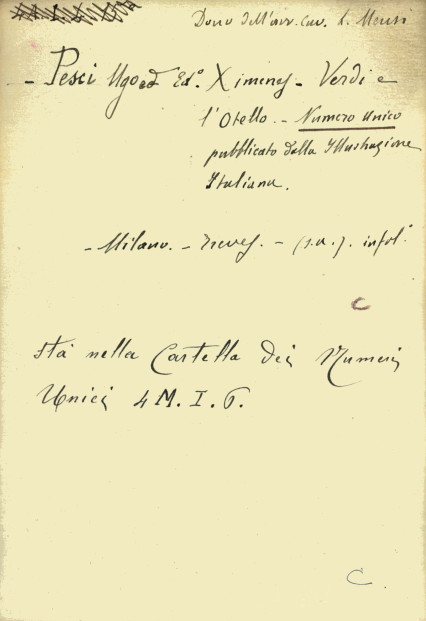 Dono dell'avv. cav. L. Mensi
- Pesci Ugo ed Ed.º Ximenes - Verdi e
l'Otello. - Numero unico
pubblicato dalla Illustrazione
Italiana.
- Milano. - Treves. - (s.a.). infol.º
C
sta nella Cartella dei Numeri
Unici 4 M. I. 6.
C.